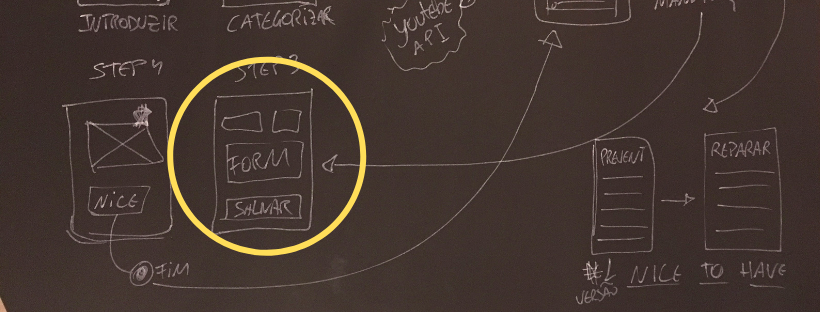 INTRODUZIR
CATEGORIZAR
YouTube
API
STEP 4
STEP 3
NICE
FIM
FORM
SALVAR
PREVENT
REPARAR
#1
VERSÃO
NICE TO HAVE